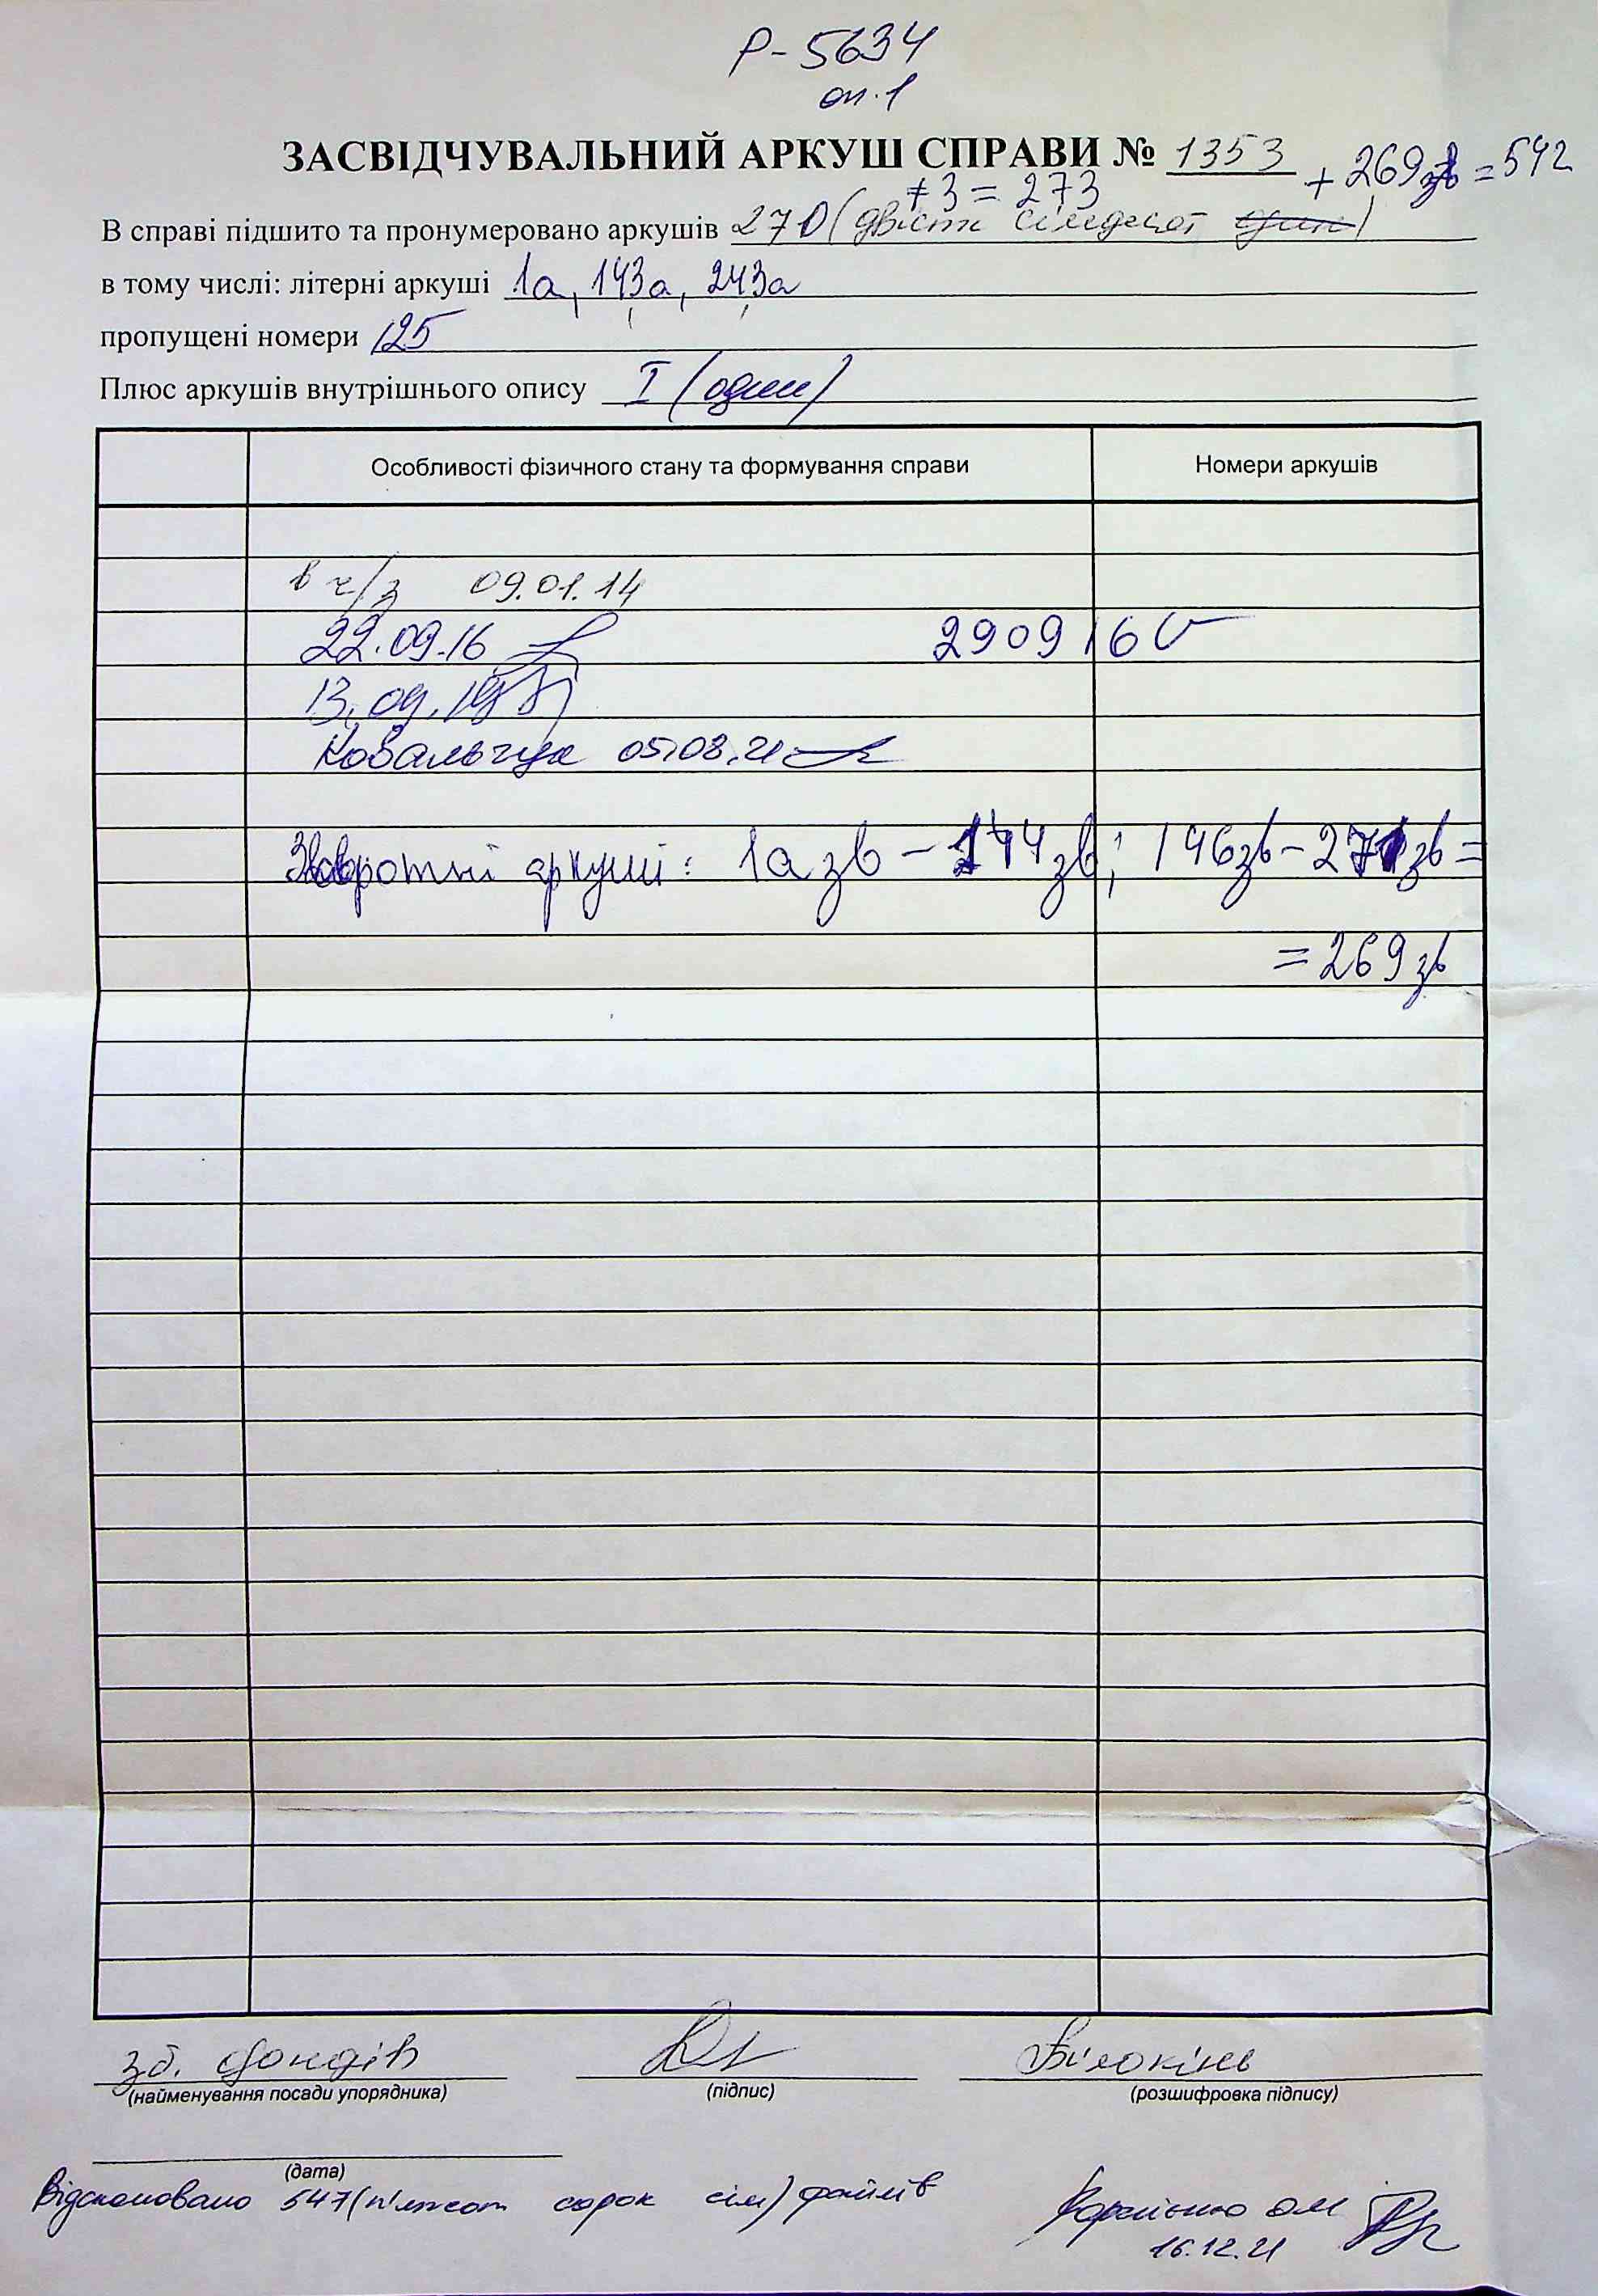 Р-5634
оп.1
ЗАСВІДЧУВАЛЬНИЙ АРКУШ СПРАВИ № 1353 + 269зв = 542
+ 3 = 273
В справі підшито та пронумеровано аркушів 270 (двісти сімдесят один)
в тому числі: літерні аркуші 1а, 143а, 243а
пропущені номери 125
Плюс аркушів внутрішнього опису I (один)
Особливості фізичного стану та формування справи Номери аркушів
в ч/з 09.01.14
22.09.16 290916
13.09.19
Ковальчук 05.08.21
Зворотні аркуші: 1а зв – 144 зв; 146зв – 271зв =
= 269 зв
зб. фондів Білокінь
(найменування посади упорядника) (підпис) (розшифровка підпису)
(дата)
Відскановано 547 (п'ятсот сорок сім) файлів
16.12.21